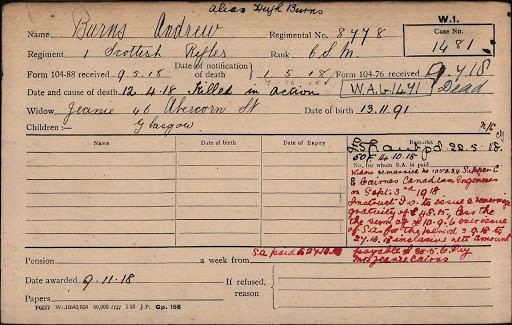 alias Hugh Burns
W.1.
Name Burns Andrew Regimental No. 8778
Case No. 1481
Regiment 1 Scottish Rifles Rank C S M.
Form 104-88 received 9.5.18 Date of notification of death 1.5.18 Form 104-76 received 9.7.18
Date and cause of death 12.4.18 Killed in action W.A.G 1471 Dead
Widow Jeanie 46 Abercorn St Date of birth 13.11.91
Children:— Glasgow
Name Date of birth Date of Expiry Remarks
£5 Grant pd 22.5.18.
SOF 14.10.18
No. for whom S.A. is paid
Widow remarried No 105234 Sapper C
E Cairns Canadian Engineers
on Sept. 3rd 1918
Instruct I.O. to issue a remarriage
gratuity of £48.15, less the
the sum of £10.9.6 over issue
of S.A. for the period 3.9.18 to
27.10.18 inclusive nett amount
payable £38.5.6 Pay
Mrs Jeanie Cairns
S.A. paid to 27.10.18
Pension a week from
Date awarded 9.11.18 If refused, reason
Papers
P6217 W.15643/854 60,000 1/18 J.P. Gp. 158